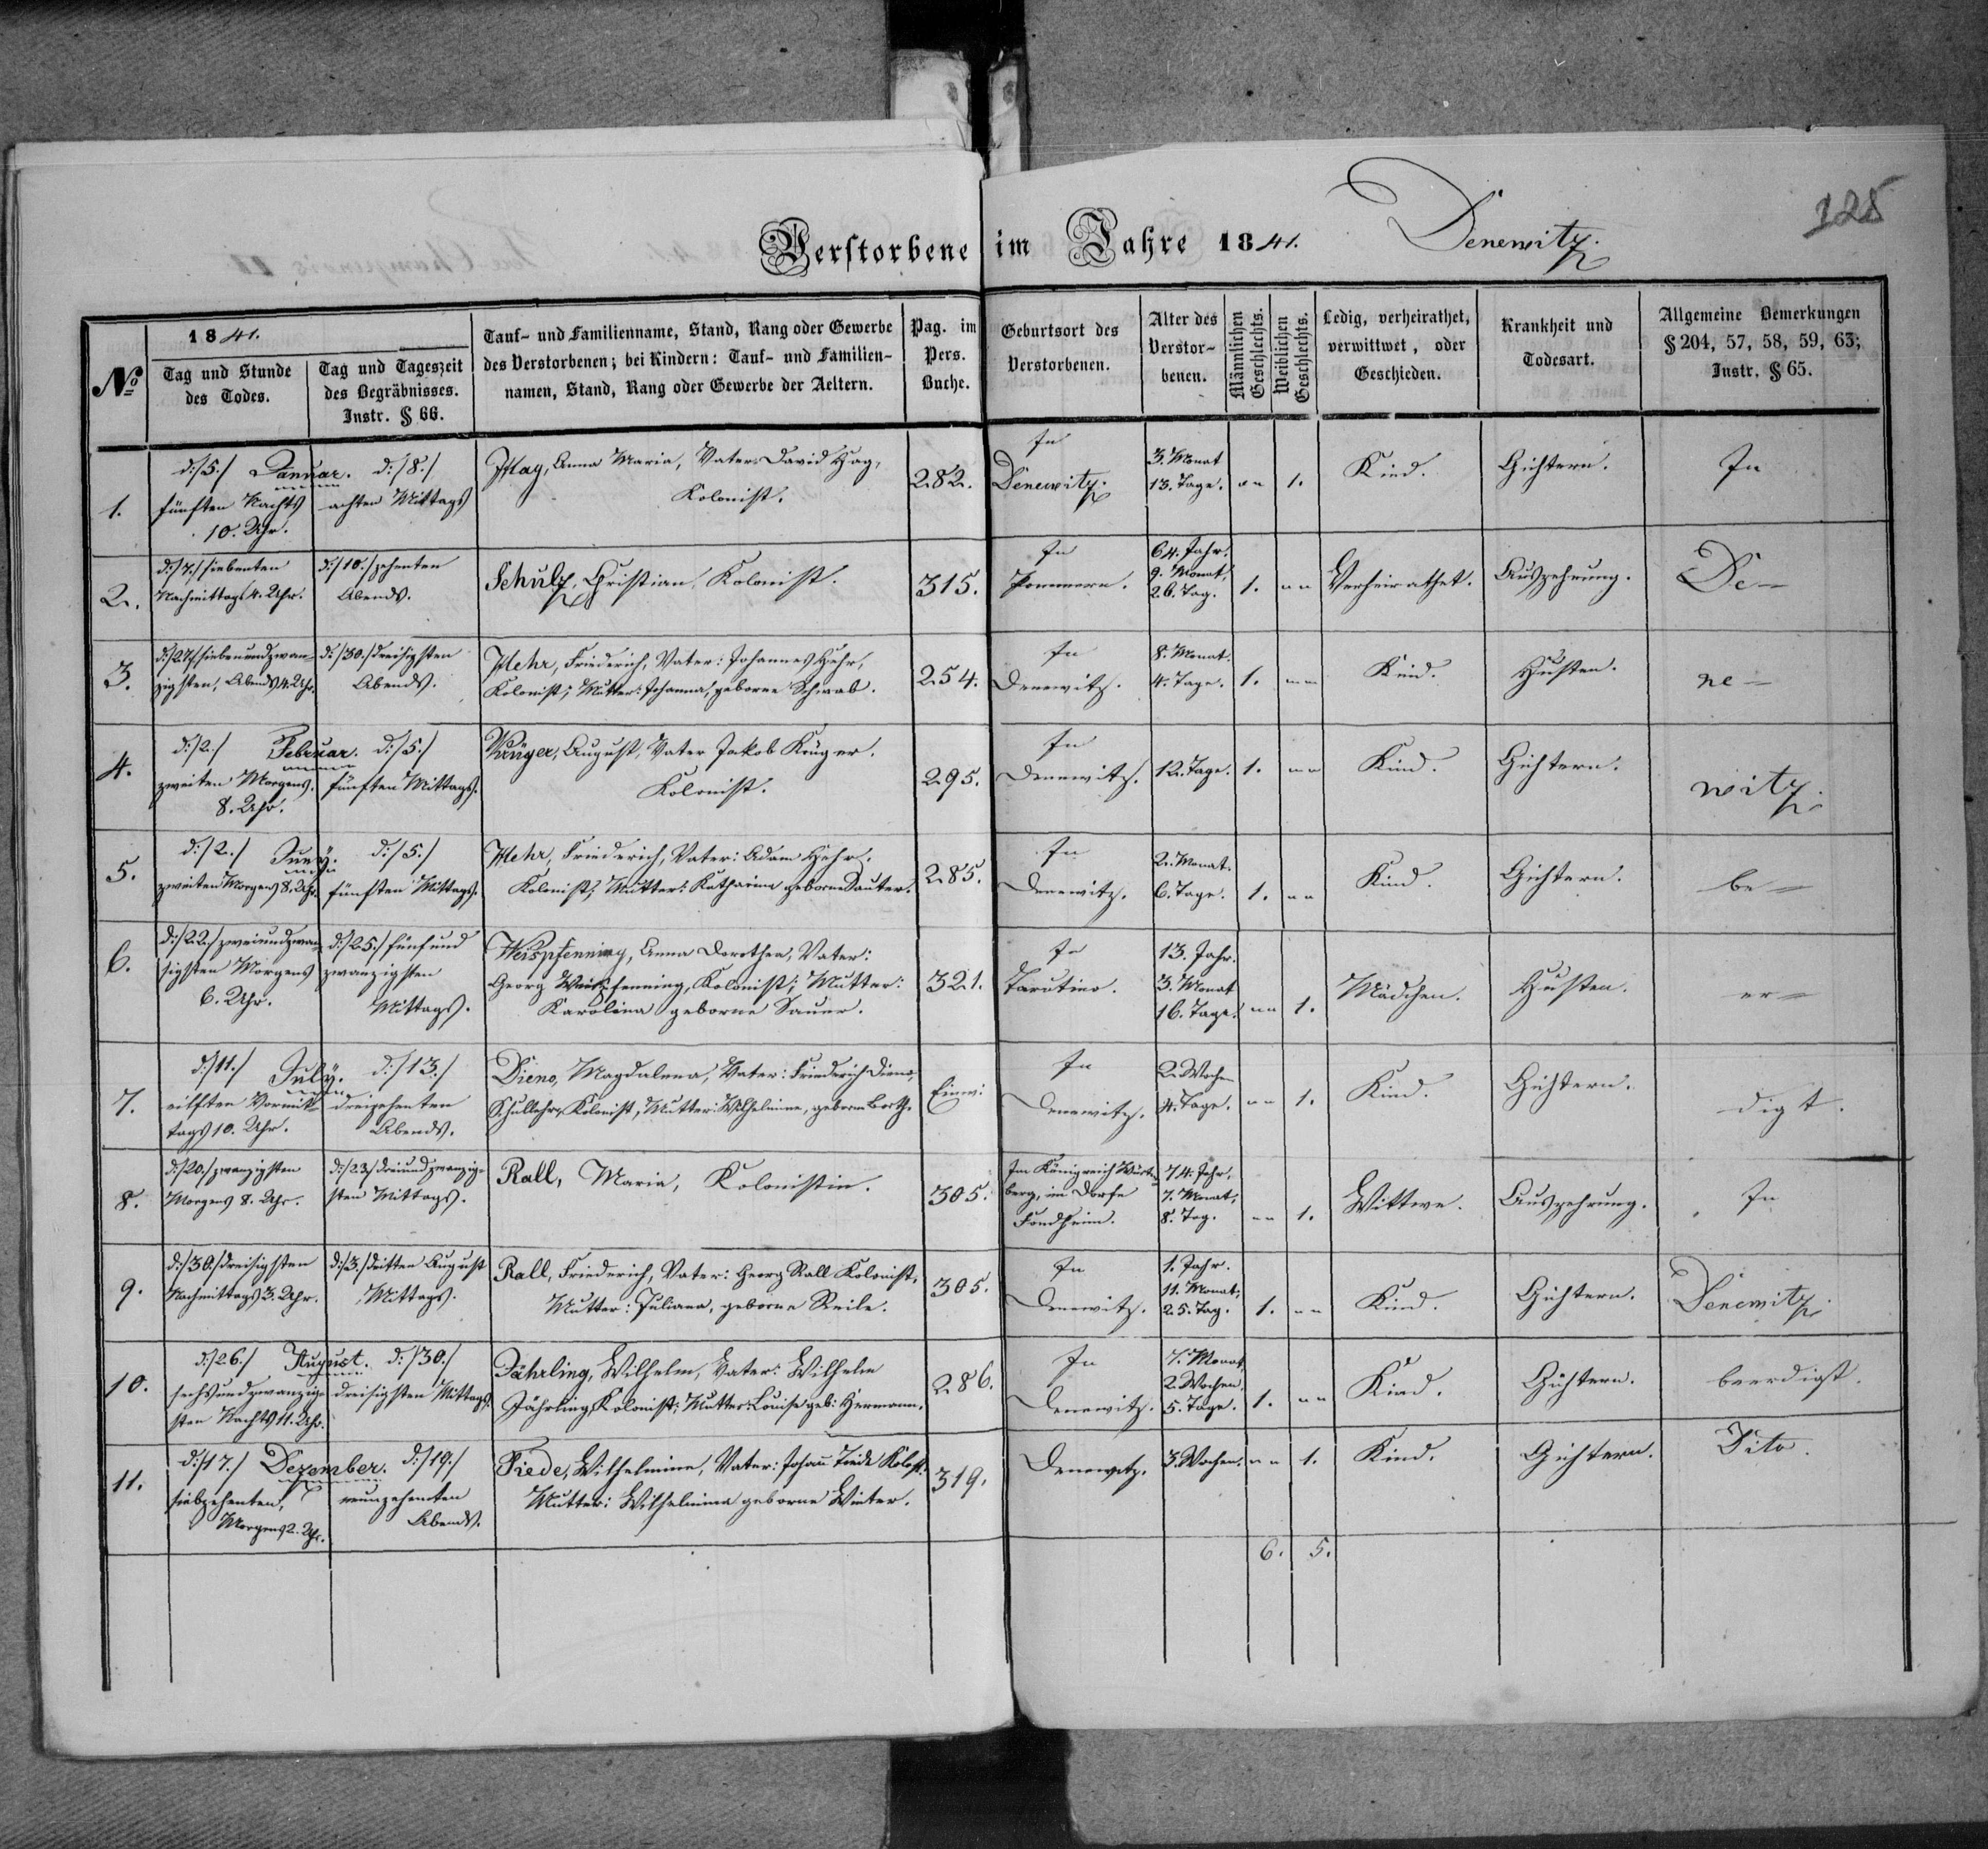 125
Verstorbene im Jahre 1841. Denewitz.
No
1841.
Tag und Stunde des Todes.
Tag und Tageszeit des Begräbnisses. Instr. § 66.
Tauf- und Familienname, Stand, Rang oder Gewerbe
des Verstorbenen; bei Kindern: Tauf- und Familien-
namen, Stand, Rang oder Gewerbe der Aeltern.
Pag. im Pers. Buche.
Geburtsort des Verstorbenen.
Alter des Verstor-benen.
Männlichen Geschlechts.
Weiblichen Geschlechts.
Ledig, verheirathet, verwittwet, oder Geschieden.
Krankheit und Todesart.
Allgemeine Bemerkungen
§ 204, 57, 58, 59, 63;
Instr. § 65.
1.
d:/5./ Januar. d:/8./
fünften Nachts achten Mittags
10. Uhr.
Hay, Anna Maria, Vater: David Hay,
Kolonist.
282.
In
Denewitz.
3. Monat
13. Tage.
1.
Kind.
Gichtern.
In
2.
d:/7./ siebenten d:/10./ zehenten
Nachmittags 4. Uhr. Abends.
Schulz, Christian, Kolonist.
315.
In
Pommern.
64. Jahr.
9. Monat,
26. Tag.
1.
Verheirathet.
Auszehrung.
De-
3.
d:/27./ siebenundzwan- d:/30./ dreisigsten
zigsten, Abends 4. Uhr. Abends.
Hehr, Friederich, Vater: Johannes Hehr,
Kolonist; Mutter: Johanna, geborne Schwab.
254.
In
Denewitz.
8. Monat.
4. Tage.
1.
Kind.
Husten.
ne-
4.
d:/2./ Februar. d:/5./
zweiten Morgens. fünften Mittags.
8. Uhr.
Krüger, August, Vater Jakob Krüger.
Kolonist.
295.
In
Denewitz.
12. Tage.
1.
Kind.
Gichtern.
witz.
5.
d:/2./ Juny. d:/5./
zweiten Morgens 8. Uhr. fünften Mittags.
Hehr, Friederich, Vater: Adam Hehr.
Kolonist; Mutter: Katharina geborne Sauter.
285.
In
Denewitz.
2. Monat.
6. Tage.
1.
Kind.
Gichtern.
be-
6.
d:/22./ zweiundzwan- d:/25./ fünfund
zigsten Morgens zwanzigsten
6. Uhr. Mittags.
Weispfenning, Anna Dorothea, Vater:
Georg Weispfenning, Kolonist; Mutter:
Karolina geborne Sauer.
321.
In
Tarutino.
13. Jahr.
3. Monat
16. Tage.
1.
Mädchen.
Husten.
er-
7.
d:/11./ July. d:/13./
eilften Vormit- dreizehenten
tags 10. Uhr. Abends.
Dieno, Magdalena, Vater: Friederich Dieno,
Schullehrer, Kolonist, Mutter: Wilhelmine, geborne
In
Denewitz.
2. Wochen
4. Tage.
1.
Kind.
Gichtern.
digt.
8.
d:/20./ zwanzigsten d:/23./ dreiundzwanzig-
Morgens 8. Uhr. sten Mittags.
Rall, Maria, Kolonistin.
305.
Im Königreich Würt-
berg, im Dorfe
74. Jahr,
7. Monat,
8. Tag.
1.
Wittwe.
Auszehrung.
In
9.
d:/30./ dreisigsten d:/3./ dritten August
Nachmittags 3. Uhr. Mittags.
Rall, Friederich, Vater: Georg Rall Kolonist,
Mutter: Juliana, geborne Reile.
305.
In
Denewitz.
1. Jahr.
11. Monat,
25. Tag.
1.
Kind.
Gichtern.
Denewitz
10.
d:/26./ August. d:/30./
sechsundzwanzig- dreisigsten Mittags.
sten Nachts 11. Uhr.
Jährling, Wilhelm, Vater: Wilhelm
Jährling, Kolonist; Mutter: Louise geb: Hermann.
286.
In
Denewitz.
7. Monat,
2. Wochen,
5. Tage.
1.
Kind.
Gichtern.
beerdigt.
11.
d:/17./ Dezember. d:/19./
siebzehenten, neunzehenten
Morgens 2. Uhr. Abends.
Tiede, Wilhelmine, Vater: Johann Tiede Kolost.
Mutter: Wilhelmina geborne Winter.
319.
Denewitz.
3. Wochen.
1.
Kind.
Gichtern.
Dito.
6. 5.